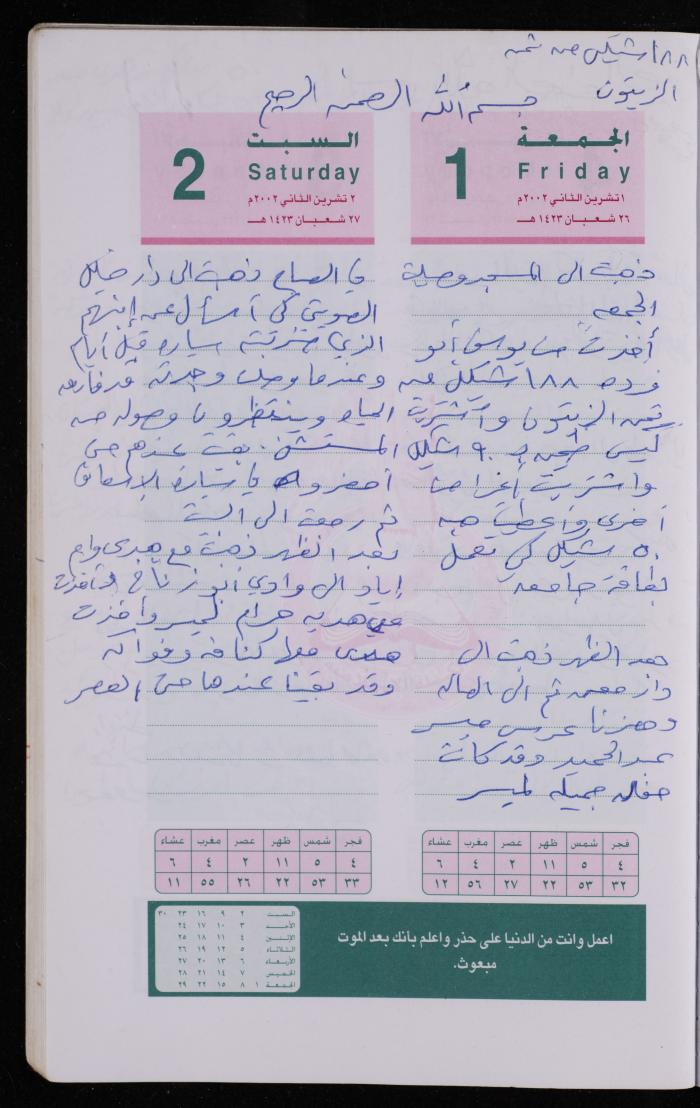 ١٨٨ شيكل من ثمن
الزيتون
بسم الله الرحمن الرحيم
الجمعة
Friday
1
١ تشرين الثاني ٢٠٠٢م
٢٦ شعبان ١٤٢٣ هـ
ذهبت الى المسجد وصلاة
الجمعه
أخذت من يوسف أبو
فرده ١٨٨ شيكل من
ثمن الزيتون واشتريت
كيس طحين بـ ٩٠ شيكل
واشتريت إغراض
أخرى وأعطيت هبه
٥٠ شيكل كي تعمل
بطاقة جامعه
بعد الظهر ذهبت الى
دار ثم الى الصاله
وحضرنا عرس ميسر
عبد الحميد وقد كانت
حفله جميله لميسر
السبت
Saturday
2
٢ تشرين الثاني ٢٠٠٢م
٢٧ شعبان ١٤٢٣ هـ
في الصباح ذهبت الى دار خليل
كي أسأل عن إبنهم
الذي ضربته سياره قبل أيام
وعندما وصلت وجدته قد فارق
الحياه وينتظرون وصوله من
المستشفى. بقيت عندهم حتى
أحضروه في سيارة الإسعاف
ثم رجعت الى البيت
بعد الظهر ذهبت مع هدى وام
إياد الى وادي أبو
هديه حرام لميسر وأخذت
هدى معها كنافه وفواكه
وقد بقينا عندها حتى العصر
فجر شمس ظهر عصر مغرب عشاء
٤ ٥ ١١ ٢ ٤ ٦
٣٢ ٥٣ ٢٢ ٢٧ ٥٦ ١٢
فجر شمس ظهر عصر مغرب عشاء
٤ ٥ ١١ ٢ ٤ ٦
٣٣ ٥٣ ٢٢ ٢٦ ٥٥ ١١
اعمل وانت من الدنيا على حذر واعلم بأنك بعد الموت
مبعوث.
السبت ٢ ٩ ١٦ ٢٣ ٣٠
الأحد ٣ ١٠ ١٧ ٢٤
الإثنين ٤ ١١ ١٨ ٢٥
الثلاثاء ٥ ١٢ ١٩ ٢٦
الأربعاء ٦ ١٣ ٢٠ ٢٧
الخميس ٧ ١٤ ٢١ ٢٨
الجمعة ١ ٨ ١٥ ٢٢ ٢٩